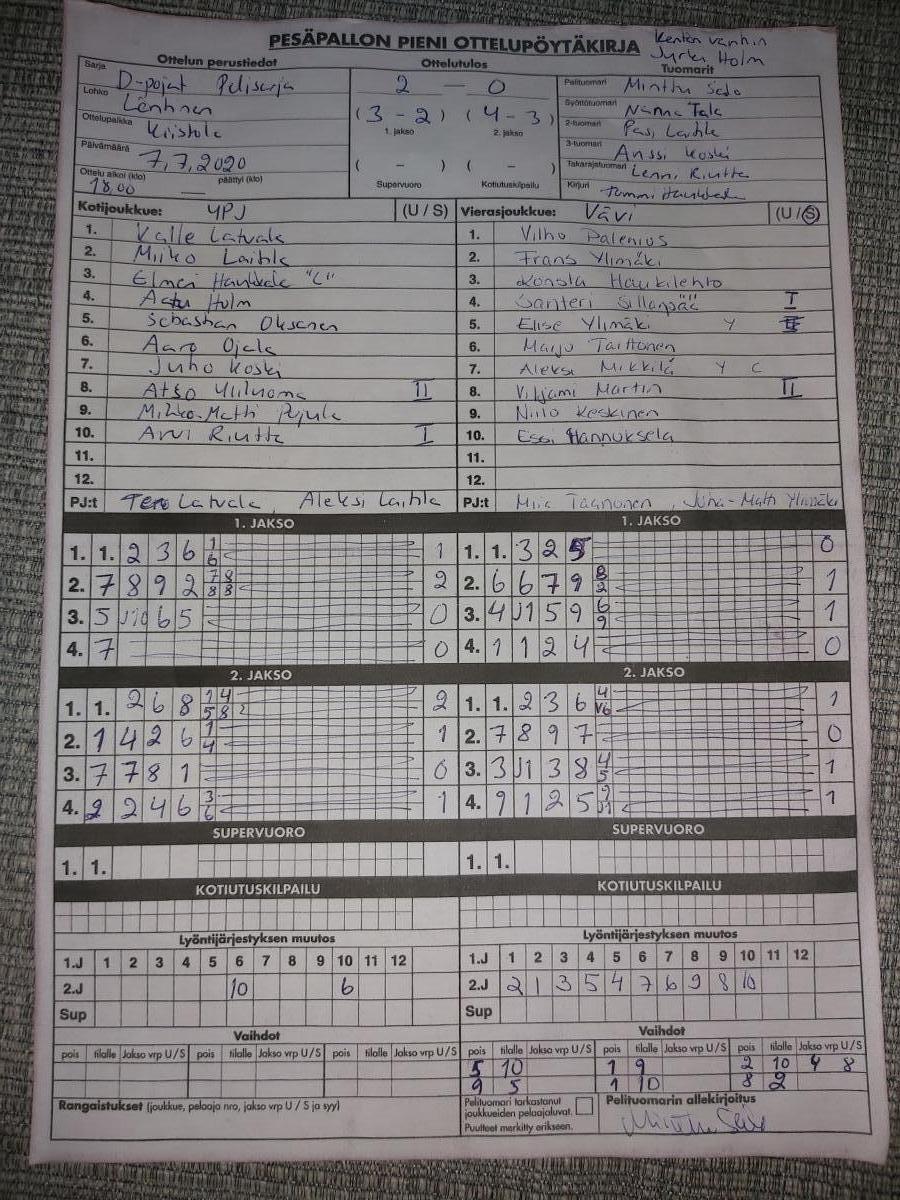 PESÄPALLON PIENI OTTELUPÖYTÄKIRJA
Kentän vanhin
Jyrki Holm
Ottelun perustiedot Ottelutulos Tuomarit
Sarja D-pojat Pelisarja
Lohko Läntinen
Ottelupaikka
Päivämäärä 7,7,2020
Ottelu alkoi (klo) 18.00 päättyi (klo)
2 — 0
(3 - 2) (4 - 3)
1. jakso 2. jakso
( - ) ( - )
Supervuoro Kotiutuskilpailu
Pelituomari Minttu
Syöttötuomari Nanna Tala
2-tuomari Pasi Laitila
3-tuomari Anssi Koski
Takarajatuomari Lenni Riutta
Kirjuri Tommi
Kotijoukkue: YPJ (U / S)
1. Valle Latvala
2. Miiko Laitila
3. Elmeri Haukkala "C"
4. Aatu Holm
5. Sebastian Oksanen
6. Aaro Ojala
7. Juho Koski
8. Atso II
9. Mikko-Matti Pujula
10. Arvi Riutta I
11.
12.
PJ:t Tero Latvala, Aleksi Laitila
Vierasjoukkue: ViVi (U / S)
1. Vilho Palenius
2. Frans Ylimäki
3. Konsta Haukilehto
4. Santeri Sillanpää I
5. Elise Ylimäki Y
6. Marju Taittonen
7. Aleksi Mikkilä Y C
8. Viljami Martin II
9. Niilo Keskinen
10. Essi Hannuksela
11.
12.
PJ:t Miia Juha-Matti Ylimäki
1. JAKSO 1. JAKSO
1. 1. 2 3 6 1 6 1
2. 7 8 9 2 7 8 8 8 2
3. 5 J10 6 5 0
4. 7 0
1. 1. 3 2 5 0
2. 6 6 7 9 8 2 1
3. 4 J1 5 9 6 9 1
4. 1 1 2 4 0
2. JAKSO 2. JAKSO
1. 1. 2 6 8 1 4 5 8 2 2
2. 1 4 2 6 1 4 1
3. 7 7 8 1 0
4. 2 2 4 6 3 6 1
1. 1. 2 3 6 4 V6 1
2. 7 8 9 7 0
3. 3 J1 3 8 4 5 1
4. 9 1 2 5 9 J1 1
SUPERVUORO SUPERVUORO
1. 1. 1. 1.
KOTIUTUSKILPAILU KOTIUTUSKILPAILU
Lyöntijärjestyksen muutos Lyöntijärjestyksen muutos
1.J 1 2 3 4 5 6 7 8 9 10 11 12
2.J 10 6
Sup
1.J 1 2 3 4 5 6 7 8 9 10 11 12
2.J 2 1 3 5 4 7 6 9 8 10
Sup
Vaihdot Vaihdot
pois tilalle Jakso vrp U / S pois tilalle Jakso vrp U / S pois tilalle Jakso vrp U / S
pois tilalle Jakso vrp U / S pois tilalle Jakso vrp U / S pois tilalle Jakso vrp U / S
5 10 1 9 2 10 4 8
9 5 1 10 8 2
Rangaistukset (joukkue, pelaaja nro, jakso vrp U / S ja syy)
Pelituomari tarkastanut
joukkueiden pelaajaluvat.
Puutteet merkitty erikseen.
Pelituomarin allekirjoitus